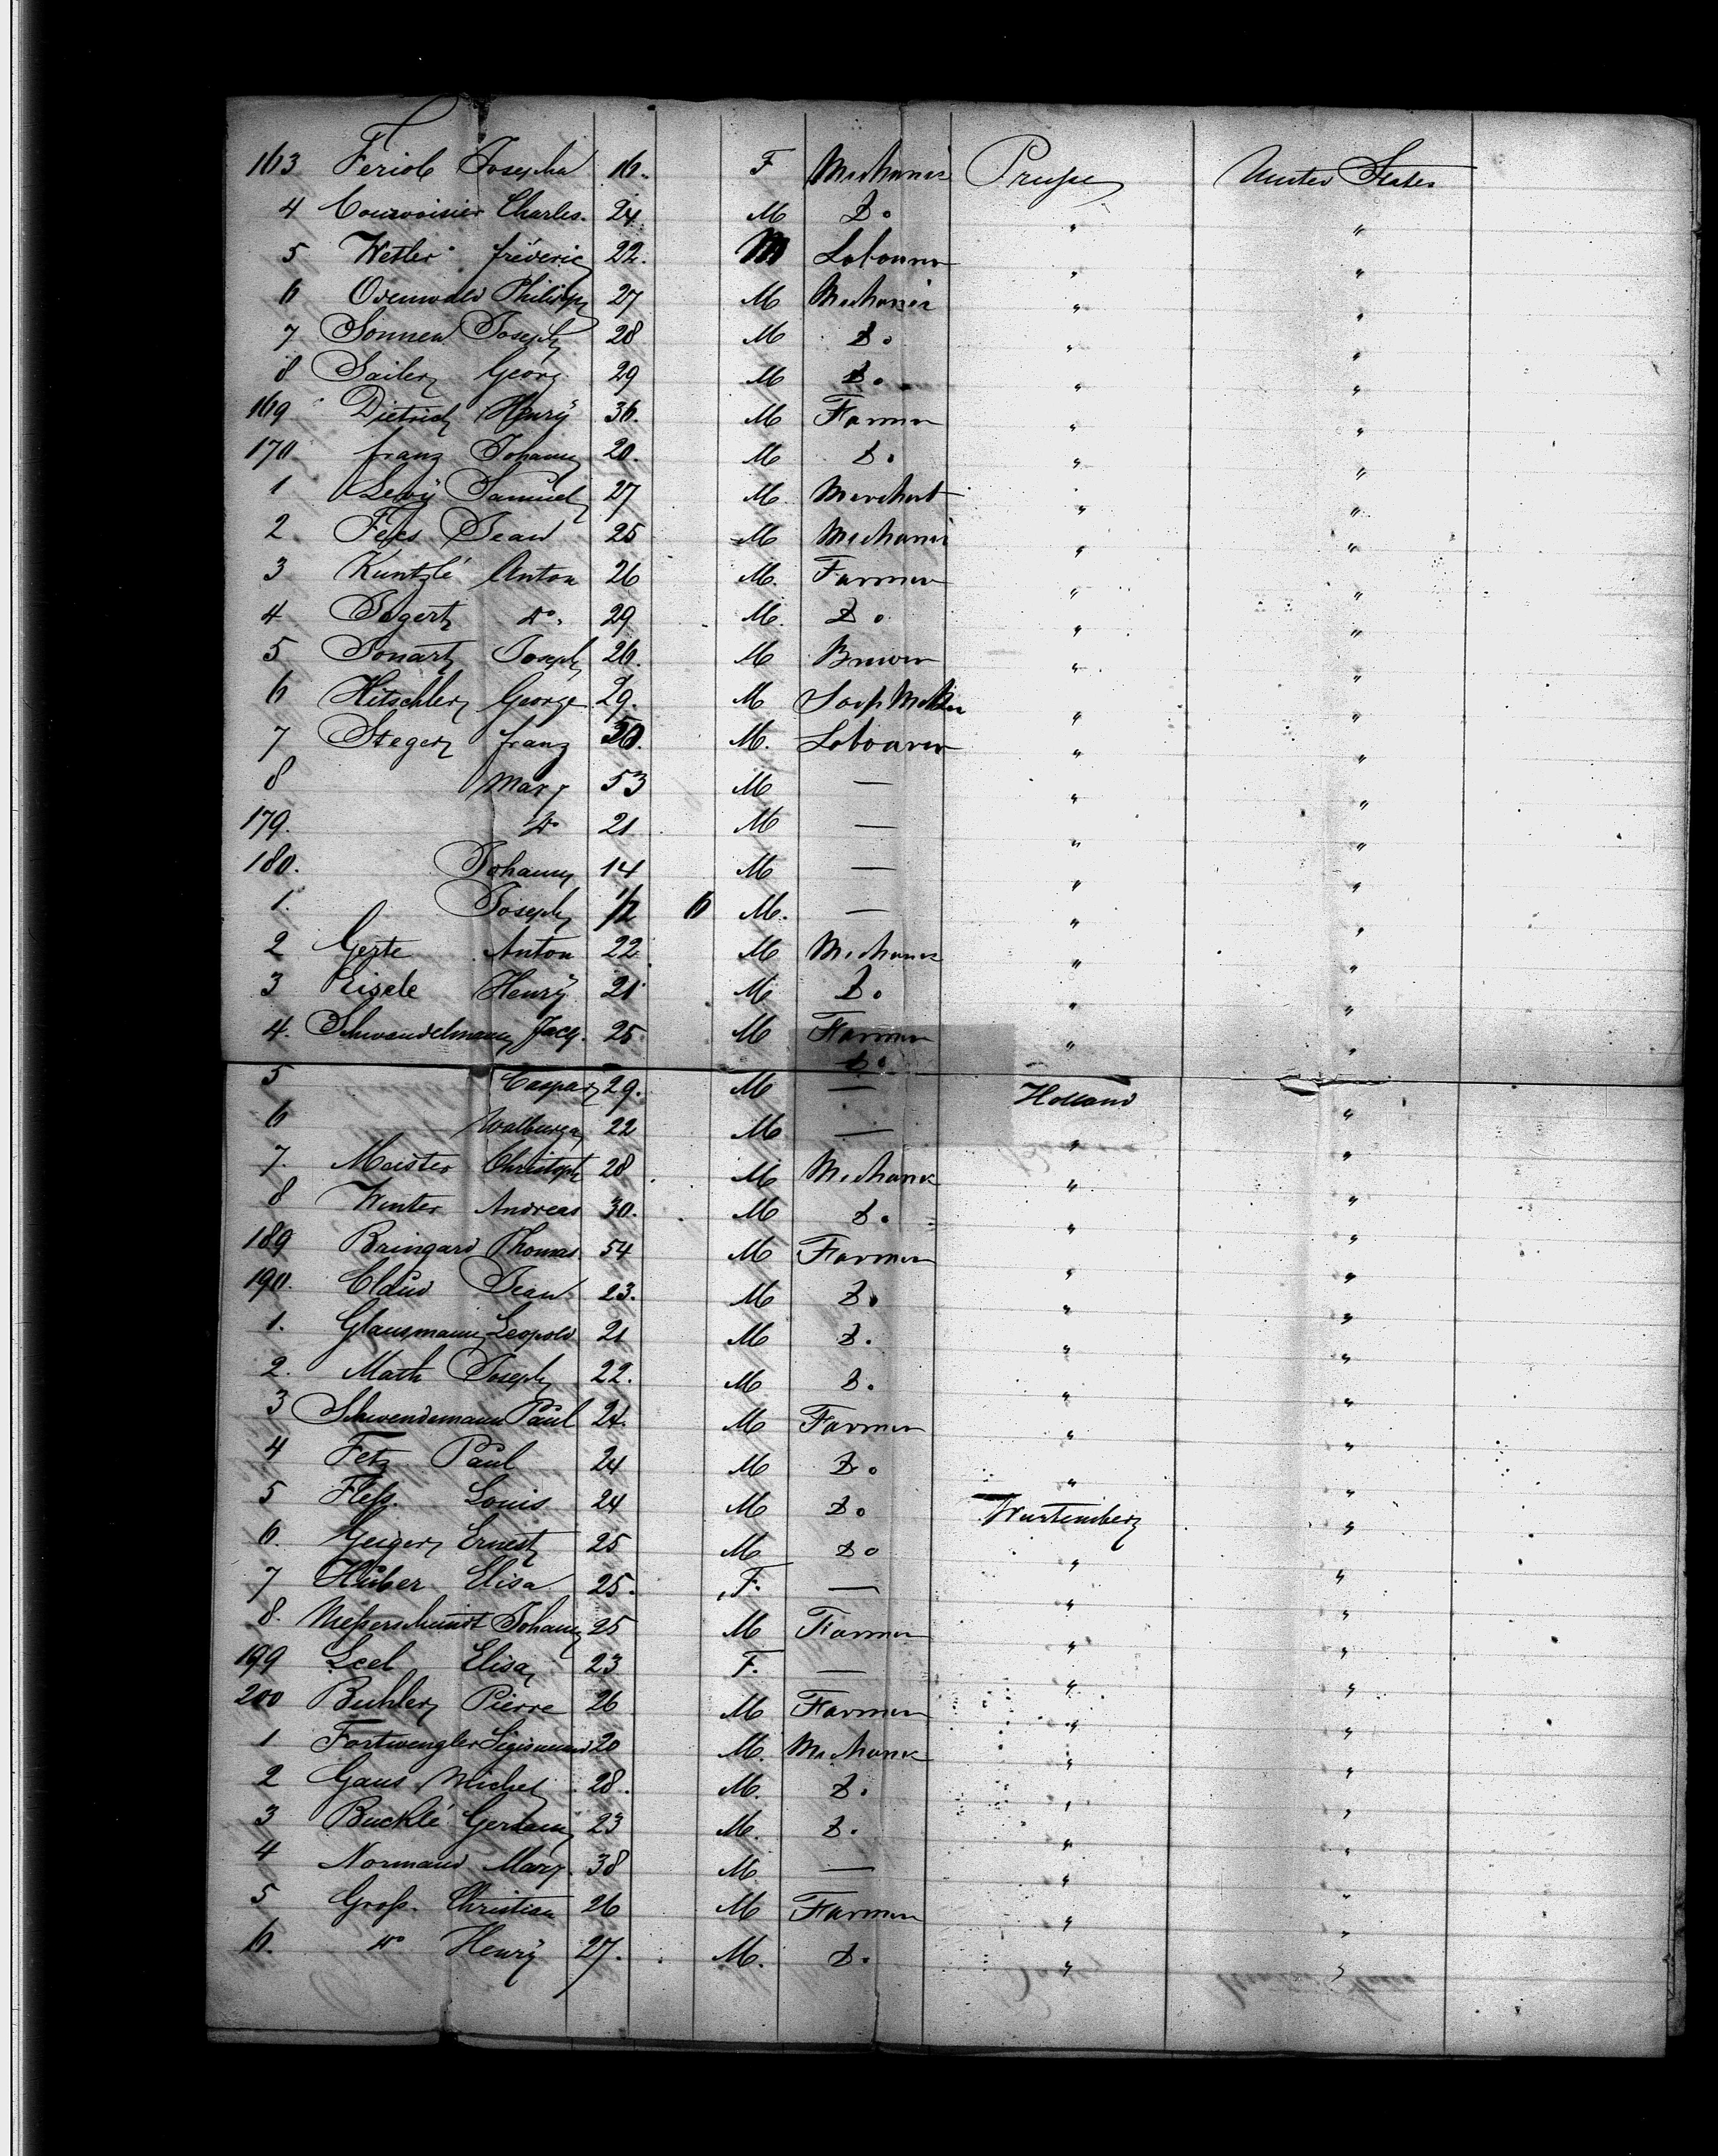 163 Feriob Josepha 16. F Mechanic Prusse United States
4 Courvoisier Charles. 24. M Do " "
5 Wetler frédéric 22. M Labourer " "
6 Odenwald Philipp 27 M Mechanic " "
7 Sonnen Joseph 28 M Do " "
8 Sailer Georg 29 M Do " "
169 Dietrich Henry 36. M Farmer " "
170. franz Johann 20. M Do " "
1 Levy Samuel 27 M Merchant " "
2 Jean 25 M Mechanic " "
3 Kuntzlé Anton 26 M. Farmer " "
4 do. 29 M. Do " "
5 Sonartz Joseph 26. M Brewer " "
6 Hitschler George 29. M Soap Maker " "
7 Steger franz 50. M. Labourer " "
8 Mary 53 M — " "
179. do 21 M — " "
180. Johann 14 M — " "
1. Joseph 1/2 6 M. — " "
2 Gezte Anton 22 M Mechanic " "
3 Eisele Henry 21 M Do " "
4. Schwendelmann Jacq. 25. M Farmer " "
Do
5 Caspar 29. M — Holland "
6 Walburga 22 M — " "
7. Meister Christoph 28. M Mechanic " "
8 Winter Andreas 30. M Do " "
189 Baingard Thomas 54 M Farmer " "
190. Claud Jean 23. M Do " "
1. Glausmann Leopold 21 M Do " "
2. Math Joseph 22. M Do " "
3 Schwendemann Paul 24. M Farmer " "
4 Fetz Paul 24 M Do " "
5 Fless. Louis 24 M Do Wurtemberg "
6. Geiger Ernest 25 M Do " "
7 Huber Elisa 25. F. — " "
8. Messerschmidt Johann 25 M Farmer " "
199 Elisa 23 F. — " "
200 Buhler Pierre 26 M Farmer " "
1 Fortwengler Sigismund 20 M. Mechanic " "
2 Gaus Michel 28. M. Do " "
3 Bucklé Germain 23 M. Do " "
4 Normand Mary. 38 M — " "
5 Gross. Christian 26 M Farmer " "
6. do Henry 27. M. Do " "